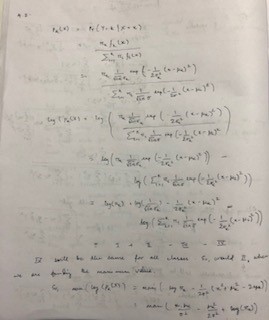 4.2.
p_k(x) = Pr(Y=k | X=x)
= π_k f_k(x) / Σ π_l f_l(x)
= π_k 1/√2πσ exp(-1/2σ² (x-μ_k)²) / Σ π_l 1/√2πσ exp(-1/2σ² (x-μ_l)²)
log(p_k(x)) = log( π_k 1/√2πσ exp(-1/2σ² (x-μ_k)²) / Σ π_l 1/√2πσ exp(-1/2σ² (x-μ_l)²) )
= log(π_k 1/√2πσ exp(-1/2σ² (x-μ_k)²)) -
log(Σ π_l 1/√2πσ exp(-1/2σ² (x-μ_l)²))
= log(π_k) + log(1/√2πσ) - 1/2σ² (x-μ_k)² -
log(Σ π_l 1/√2πσ exp(-1/2σ² (x-μ_l)²))
will be the same for all classes so, would II, when
we are finding the maximum value
log(p_k(x)) = max(log π_k - 1/2σ² (x² + μ_k² - 2μ_k x))
= max(xμ_k/σ² - μ_k²/2σ² + log(π_k))